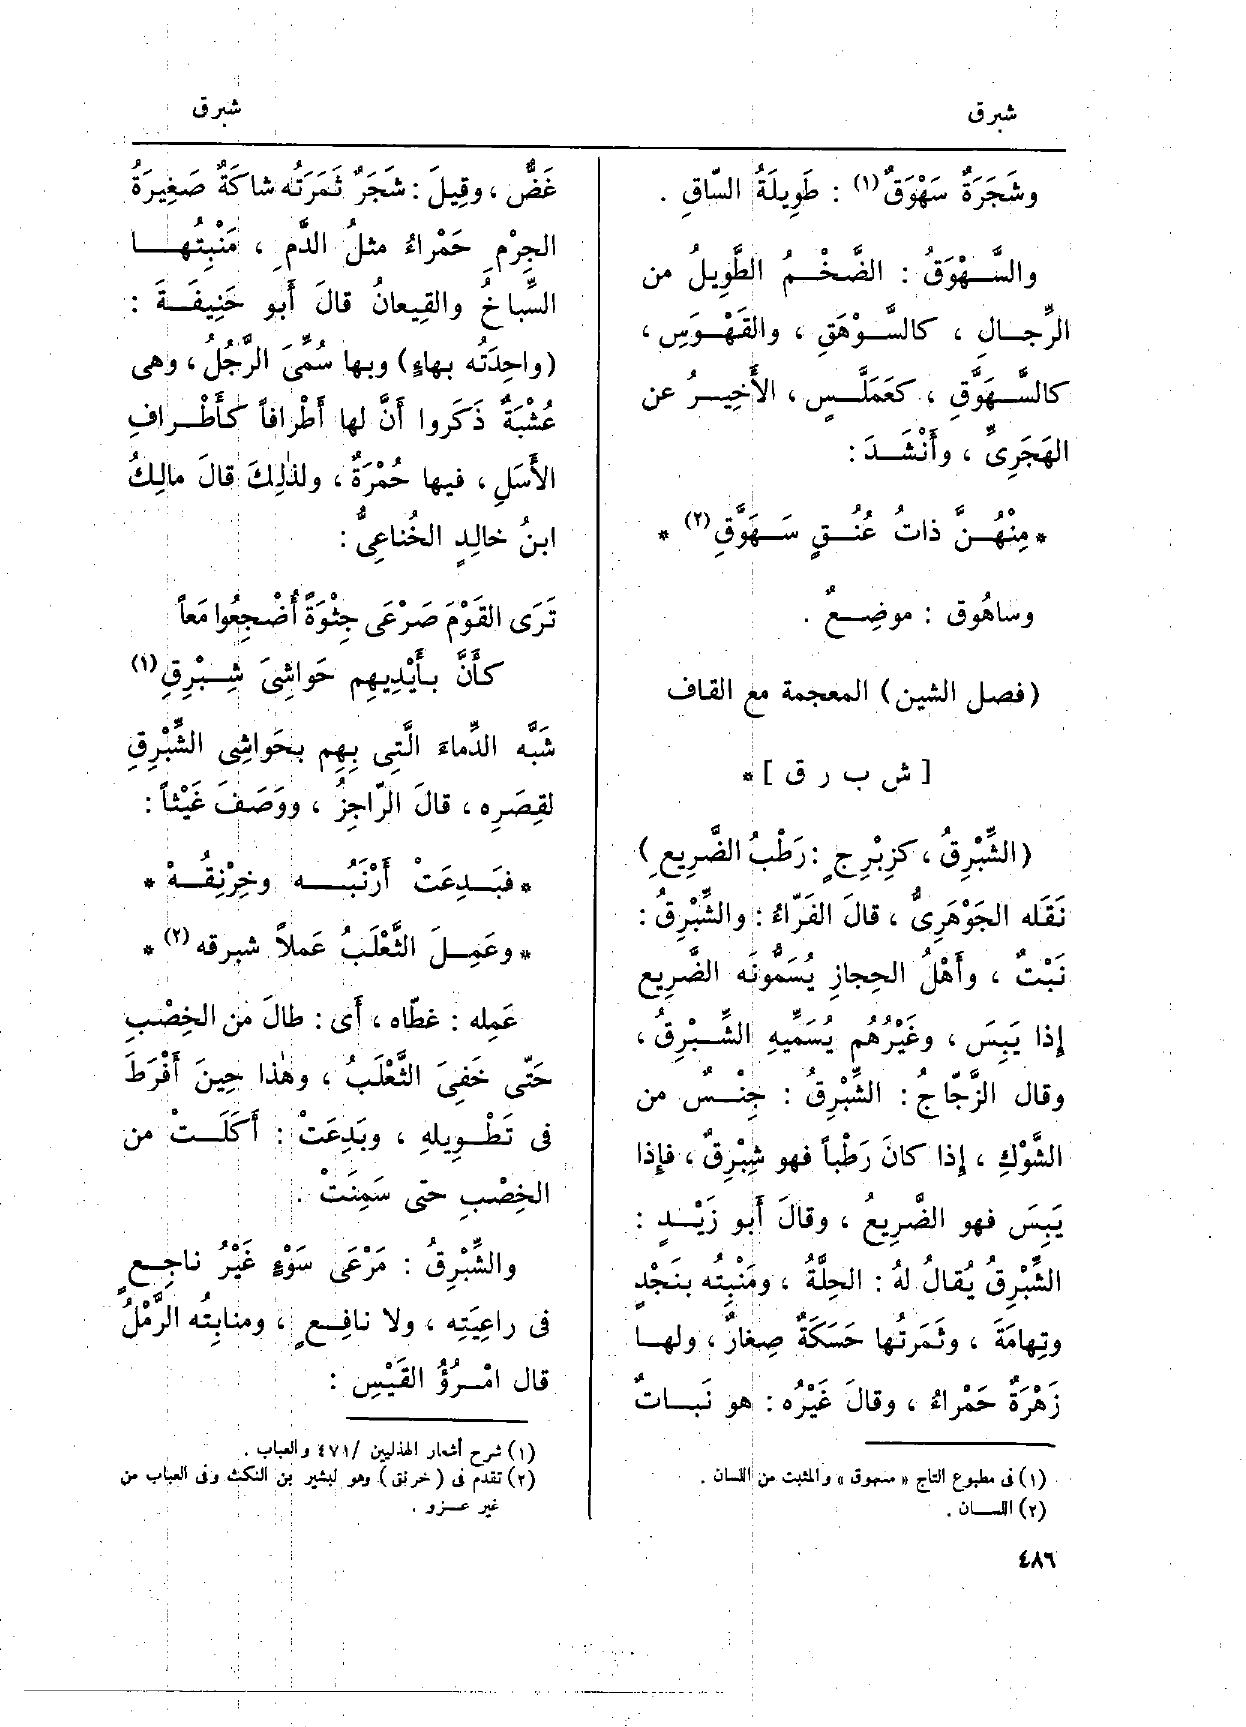 شبرق
شبرق
وشَجَرَةٌ سَهْوَقٌ (١) : طَوِيلَةُ السّاقِ .
والسَّهْوَقُ : الضَّخْمُ الطَّوِيلُ من
الرِّجالِ ، كالسَّوْهَقِ ، والقَهْوَسِ ،
كالسَّهَوَّقِ ، كعَمَلَّسٍ ، الأَخِيرُ عن
الهَجَرِىِّ ، وأَنْشَدَ :
* مِنْهُنَّ ذاتُ عُنُقٍ سَهَوَّقِ (٢) *
وساهُوق : موضِعٌ .
(فصل الشين) المعجمة مع القاف
[ ش ب ر ق ] *
(الشِّبْرِقُ ، كزِبْرِجٍ : رَطْبُ الضَّرِيعِ)
نَقَله الجَوْهَرِىُّ ، قالَ الفَرّاءُ : والشِّبْرِقُ :
نَبْتٌ ، وأَهْلُ الحِجازِ يُسَمُّونَه الضَّرِيع
إذا يَبِسَ ، وغَيْرُهُم يُسَمِّيهِ الشِّبْرِقُ ،
وقال الزَّجّاجُ : الشِّبْرِقُ : جِنْسٌ من
الشَّوْكِ ، إذا كانَ رَطْباً فهو شِبْرِقٌ ، فإِذا
يَبِسَ فهو الضَّرِيعُ ، وقالَ أَبو زَيْدٍ :
الشِّبْرِقُ يُقالُ لهُ : الحِلَّةُ ، ومَنْبِتُه بنَجْدٍ
وتِهامَةَ ، وثَمَرتُها حَسَكَةٌ صِغارٌ ، ولها
زَهْرَةٌ حَمْراءُ ، وقالَ غَيْرُه : هو نَباتٌ
(١) فى مطبوع التاج « سهوق » والمثبت من اللسان .
(٢) اللسان .
٤٨٦
غَضٌّ ، وقِيلَ : شَجَرٌ ثَمَرَتُه شاكَةٌ صَغِيرَةُ
الجِرْمِ حَمْراءُ مثلُ الدَّمِ ، مَنْبِتُها
السِّباخُ والقِيعانُ قالَ أَبو حَنِيفَةَ :
(واحِدَتُه بهاءٍ) وبها سُمِّىَ الرَّجُلُ ، وهى
عُشْبَةٌ ذَكَروا أَنَّ لها أَطْرافاً كأَطْرافِ
الأَسَلِ ، فيها حُمْرَةٌ ، ولذٰلِكَ قالَ مالِكُ
ابنُ خالِدٍ الخُناعِىُّ :
تَرَى القَوْمَ صَرْعَى جِثْوَةً أُضْجِعُوا مَعاً
كأَنَّ بأَيْدِيهِم حَواشِىَ شِبْرِقِ (١)
شَبَّه الدِّماءَ الَّتِى بِهِم بحَواشِى الشِّبْرِقِ
لقِصَرِه ، قالَ الرّاجِزُ ، ووَصَفَ غَيْثاً :
* فبَدِعَتْ أَرْنَبُه وخِرْنِقُهْ *
* وعَمِلَ الثَّعْلَبُ عَملاً شبرقه (٢) *
عَمِله : غطّاه ، أَى : طالَ من الخِصْبِ
حَتّى خَفِىَ الثَّعْلَبُ ، وهٰذا حِينَ أَفْرَطَ
فى تَطْوِيلِهِ ، وبَدِعَتْ : أَكَلَتْ من
الخِصْبِ حتى سَمِنَتْ .
والشِّبْرِقُ : مَرْعَى سَوْءٍ غَيْرُ ناجِعٍ
فى راعِيَتِه ، ولا نافِعٍ ، ومنابِتُه الرَّمْلُ
قال امْرُؤُ القَيْسِ :
(١) شرح أشعار الهذليين /٤٧١ والعباب .
(٢) تقدم فى (خرنق) وهو لبشير بن النكث وفى العباب من
غير عزو .